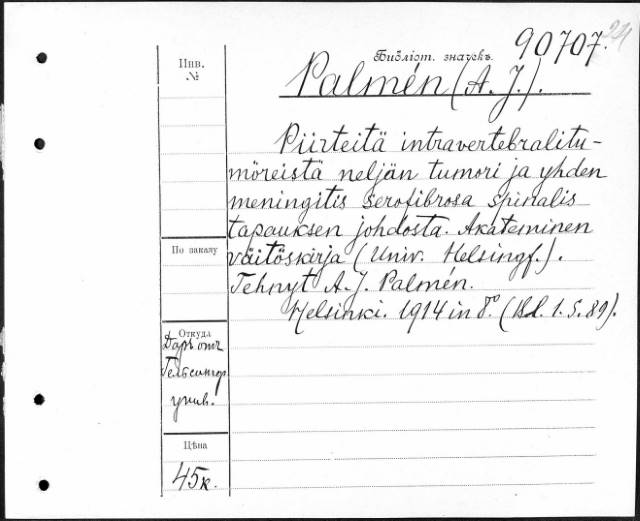 24
Библіот. значекъ. 90707.
Инв.
№
Palmén (A. J.).
Piirteitä intravertebralitu-
möreistä neljän tumori ja yhden
meningitis serofibrosa spinalis
tapauksen johdosta. Akateminen
väitöskirja (Univ. Helsingf.).
Tehnyt A. J. Palmén.
Helsinki. 1914 in 8º. (Bd. 1. S. 89).
По заказу
Откуда
Даръ отъ
Гельсингф.
унив.
Цѣна
45 к.